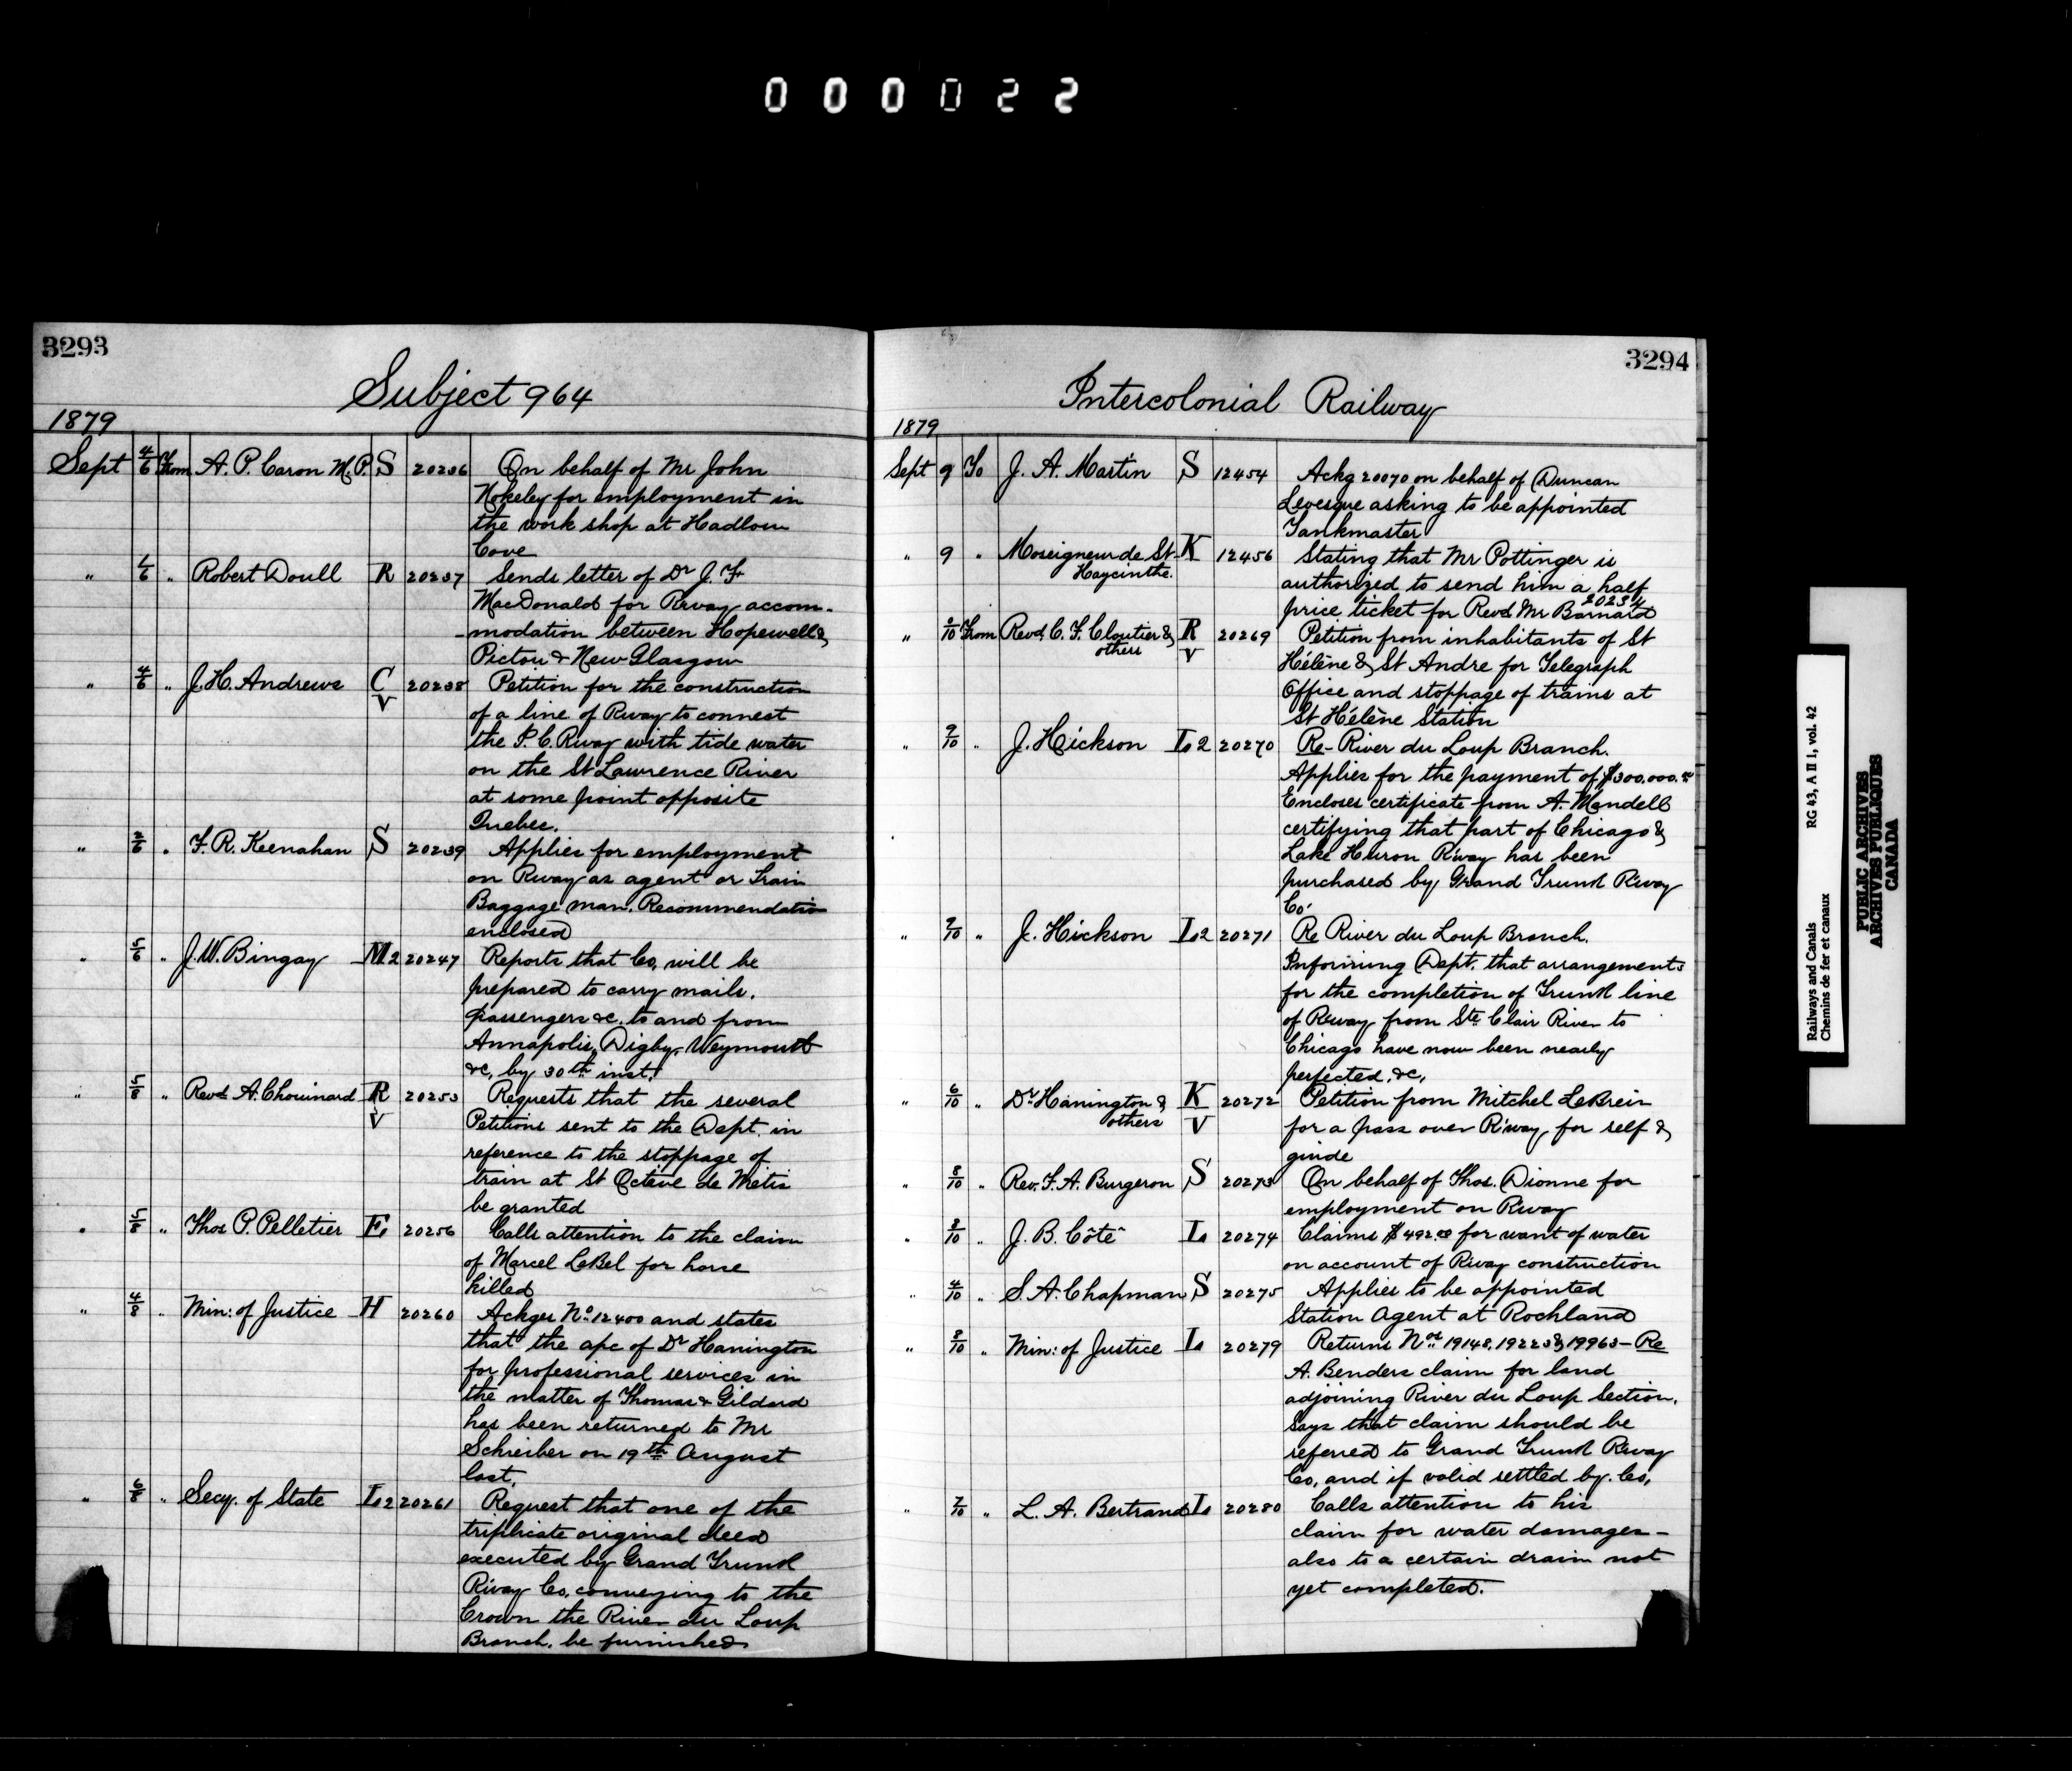 000022
3293
Subject 964
1879
Sept 4/6 From A. P. Caron M.P. S 20236 On behalf of Mr John
Nokeley for employment in
the work shop at Hadlow
Cove
" 6/6 " Robert Doull R 20237 Sends letter of Dr J. F.
MacDonald for Rway accom-
-modation between Hopewell &
Pictou & New Glasgow
" 4/6 " J. H. Andrews C/V 20238 Petition for the construction
of a line of Rway to connect
the I. C. Rway with tide water
on the St Lawrence River
at some point opposite
Quebec.
" 2/6 " F. R. Keenahan S 20239 Applies for employment
on Rway as agent or Train
Baggage man. Recommendation
enclosed
" 5/6 " J. W. Bingay M2 20247 Reports that Co, will be
prepared to carry mails,
passengers &c. to and from
Annapolis, Digby, Weymouth
&c, by 30th inst.
" 5/8 " Revd A. Chouinard R/V 20253 Requests that the several
Petitions sent to the Dept. in
reference to the stoppage of
train at St Octave de Metis
be granted
" 5/8 " Thos P. Pelletier E. 20256 Calls attention to the claim
of Marcel LeBel for horse
killed
" 4/8 " Min: of Justice H 20260 Ackges No. 12400 and states
that the a/c of Dr Hanington
for professional services in
the matter of Thomas & Gildard
has been returned to Mr
Schreiber on 19th August
last.
" 6/8 " Secy. of State L2 20261 Request that one of the
triplicate original deed
executed by Grand Trunk
Rway Co. conveying to the
Crown the River du Loup
Branch, be furnished
3294
Intercolonial Railway
1879
Sept 9 To J. A. Martin S 12454 Ackg 20070 on behalf of Duncan
Levesque asking to be appointed
Tankmaster
" 9 " Moseigneur de St K 12456 Stating that Mr Pottinger is
Haycinthe. authorized to send him a half
price ticket for Revd Mr Barnard
" 9/10 From Revd. C. F. Cloutier & R/V 20269 Petition from inhabitants of St
others Hélène & St Andre for Telegraph
Office and stoppage of trains at
St Hélène Station
" 9/10 " J. Hickson L2 20270 Re- River du Loup Branch.
Applies for the payment of $300,000.
Encloses certificate from A. Mandell
certifying that part of Chicago &
Lake Huron R'way has been
purchased by Grand Trunk R'way
Co.
" 9/10 " J. Hickson L2 20271 Re River du Loup Branch.
Informing Dept. that arrangements
for the completion of Trunk line
of Rway from Ste Clair River to
Chicago have now been nearly
perfected, &c,
" 6/10 " Dr Hanington & K/V 20272 Petition from Mitchel LeBreir
others for a pass over R'way, for self &
guide
" 8/10 " Rev. F. A. Burgeron S 20273 On behalf of Thos. Dionne for
employment on Rway
" 8/10 " J. B. Côté L. 20274 Claims $492.00 for want of water
on account of Rway construction
" 4/10 " S. A. Chapman S 20275 Applies to be appointed
Station Agent at Rockland
" 8/10 " Min: of Justice L 20279 Returns Nos. 19148, 19223 & 19963 - Re
A. Benders claim for land
adjoining River du Loup Section.
Says that claim should be
referred to Grand Trunk Rway
Co, and if valid settled by. Co,
" 7/10 " L. A. Bertrand L. 20280 Calls attention to his
claim for water damages -
also to a certain drain not
yet completed.
Railways and Canals RG 43, A II 1, vol. 42
Chemins de fer et canaux
PUBLIC ARCHIVES
ARCHIVES PUBLIQUES
CANADA